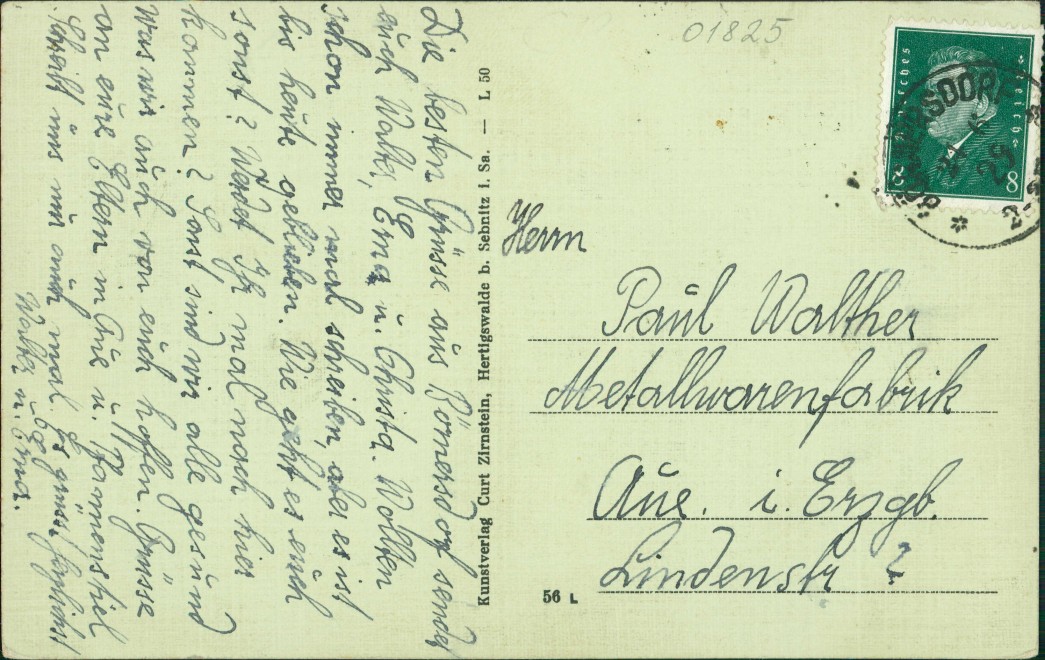 Die besten Grüsse aus Bomersdorf sendet
euch Walter, Erna u. Christa. Wollten
schon immer mal schreiben, aber es ist
bis heute geblieben. Wie geht es euch
sonst? Werdet Ihr mal nach hier
kommen? Sonst sind wir alle gesund
was wir auch von euch hoffen. Grüsse
an eure Eltern in Aue u.
Schreibt uns nun auch mal. Es grüsst herzlichst
Walter u. Erna.
Kunstverlag Curt Zirnstein, Hertigswalde b. Sebnitz i. Sa. — L 50
01825
Deutsches Reich
8
29
Herrn
Paul Walther
Metallwarenfabrik
Aue. i. Erzgb.
Lindenstr 2
56 L